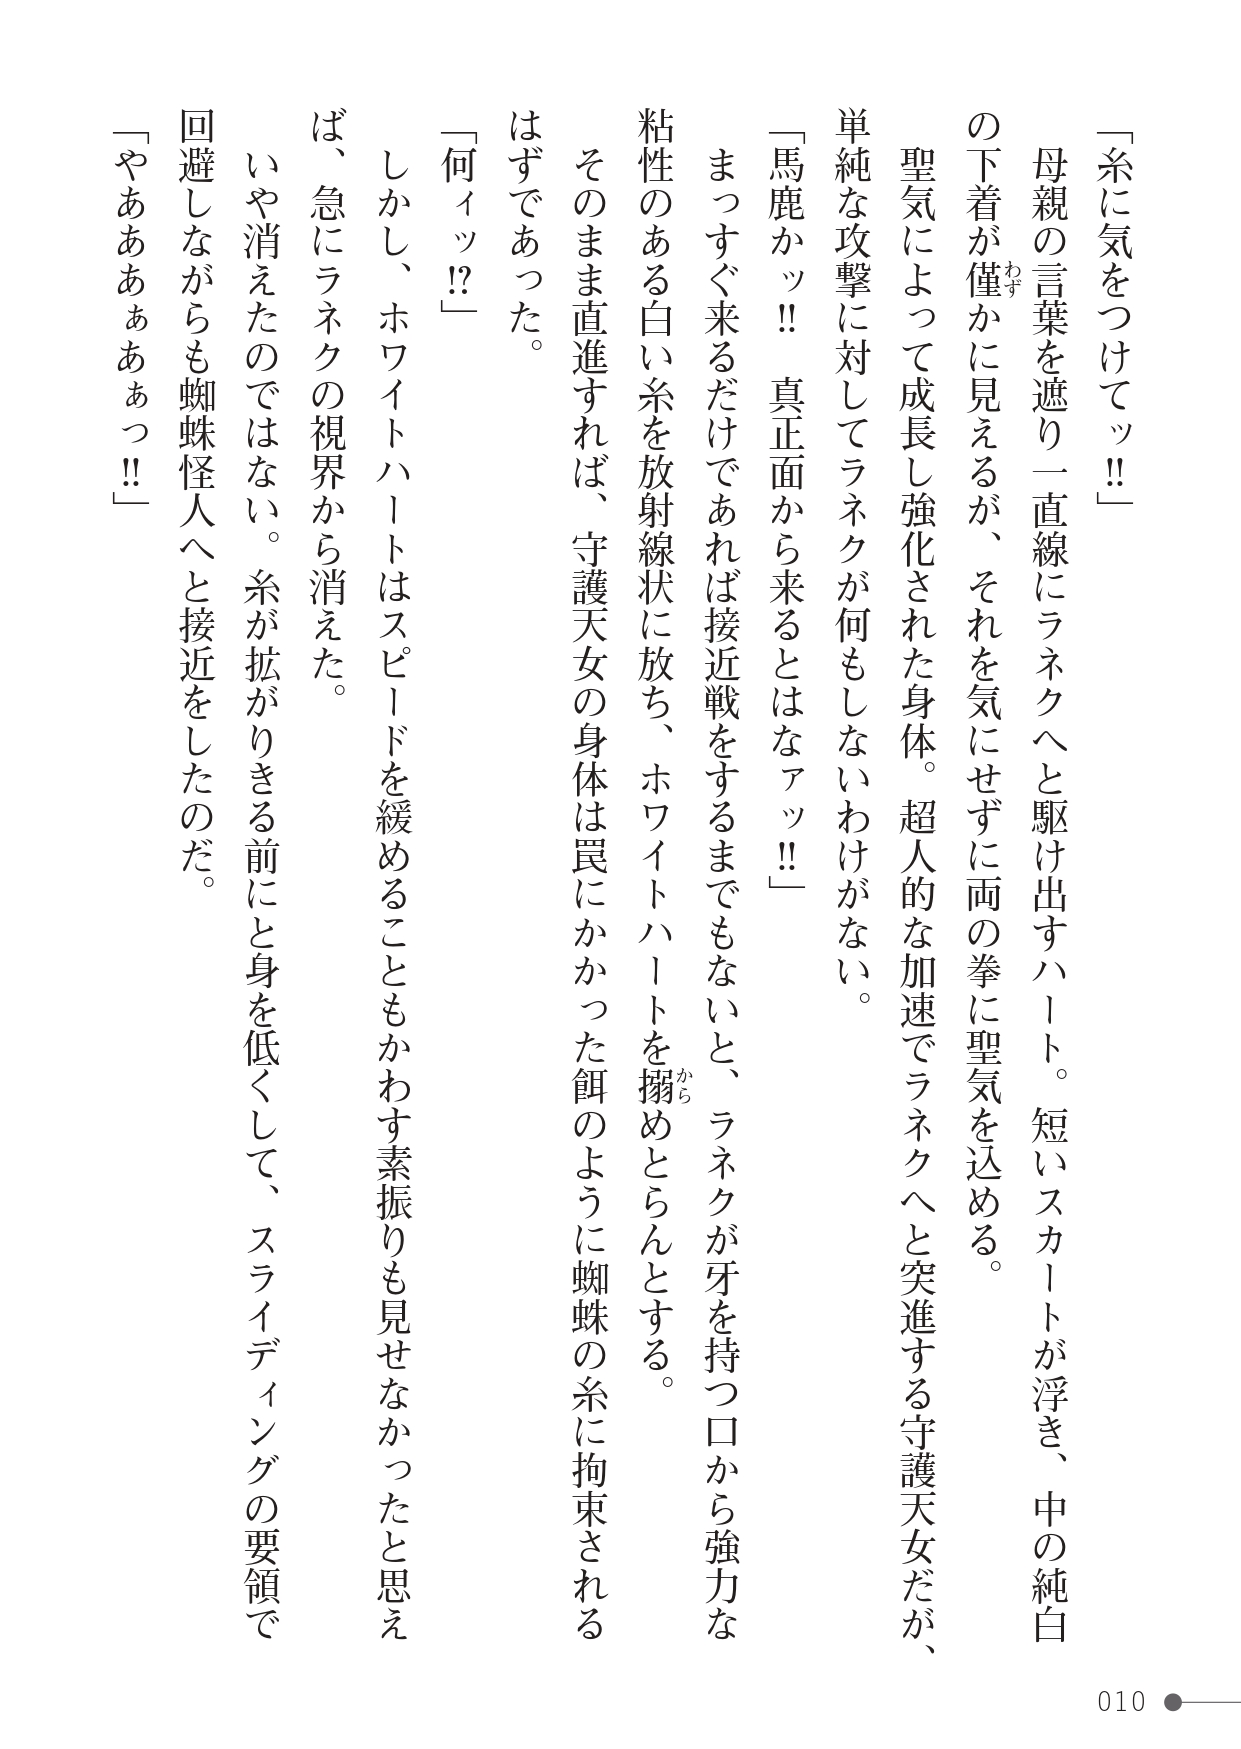 「糸に気をつけてッ!!」
母親の言葉を遮り一直線にラネクへと駆け出すハート。短いスカートが浮き、中の純白
の下着が僅かに見えるが、それを気にせずに両の拳に聖気を込める。
わず
聖気によって成長し強化された身体。超人的な加速でラネクへと突進する守護天女だが、
単純な攻撃に対してラネクが何もしないわけがない。
「馬鹿かッ!!　真正面から来るとはなァッ!!」
まっすぐ来るだけであれば接近戦をするまでもないと、ラネクが牙を持つ口から強力な
粘性のある白い糸を放射線状に放ち、ホワイトハートを搦めとらんとする。
から
そのまま直進すれば、守護天女の身体は罠にかかった餌のように蜘蛛の糸に拘束される
はずであった。
「何ィッ!?」
しかし、ホワイトハートはスピードを緩めることもかわす素振りも見せなかったと思え
ば、急にラネクの視界から消えた。
いや消えたのではない。糸が拡がりきる前にと身を低くして、スライディングの要領で
回避しながらも蜘蛛怪人へと接近をしたのだ。
「やあああぁあぁっ!!」
010